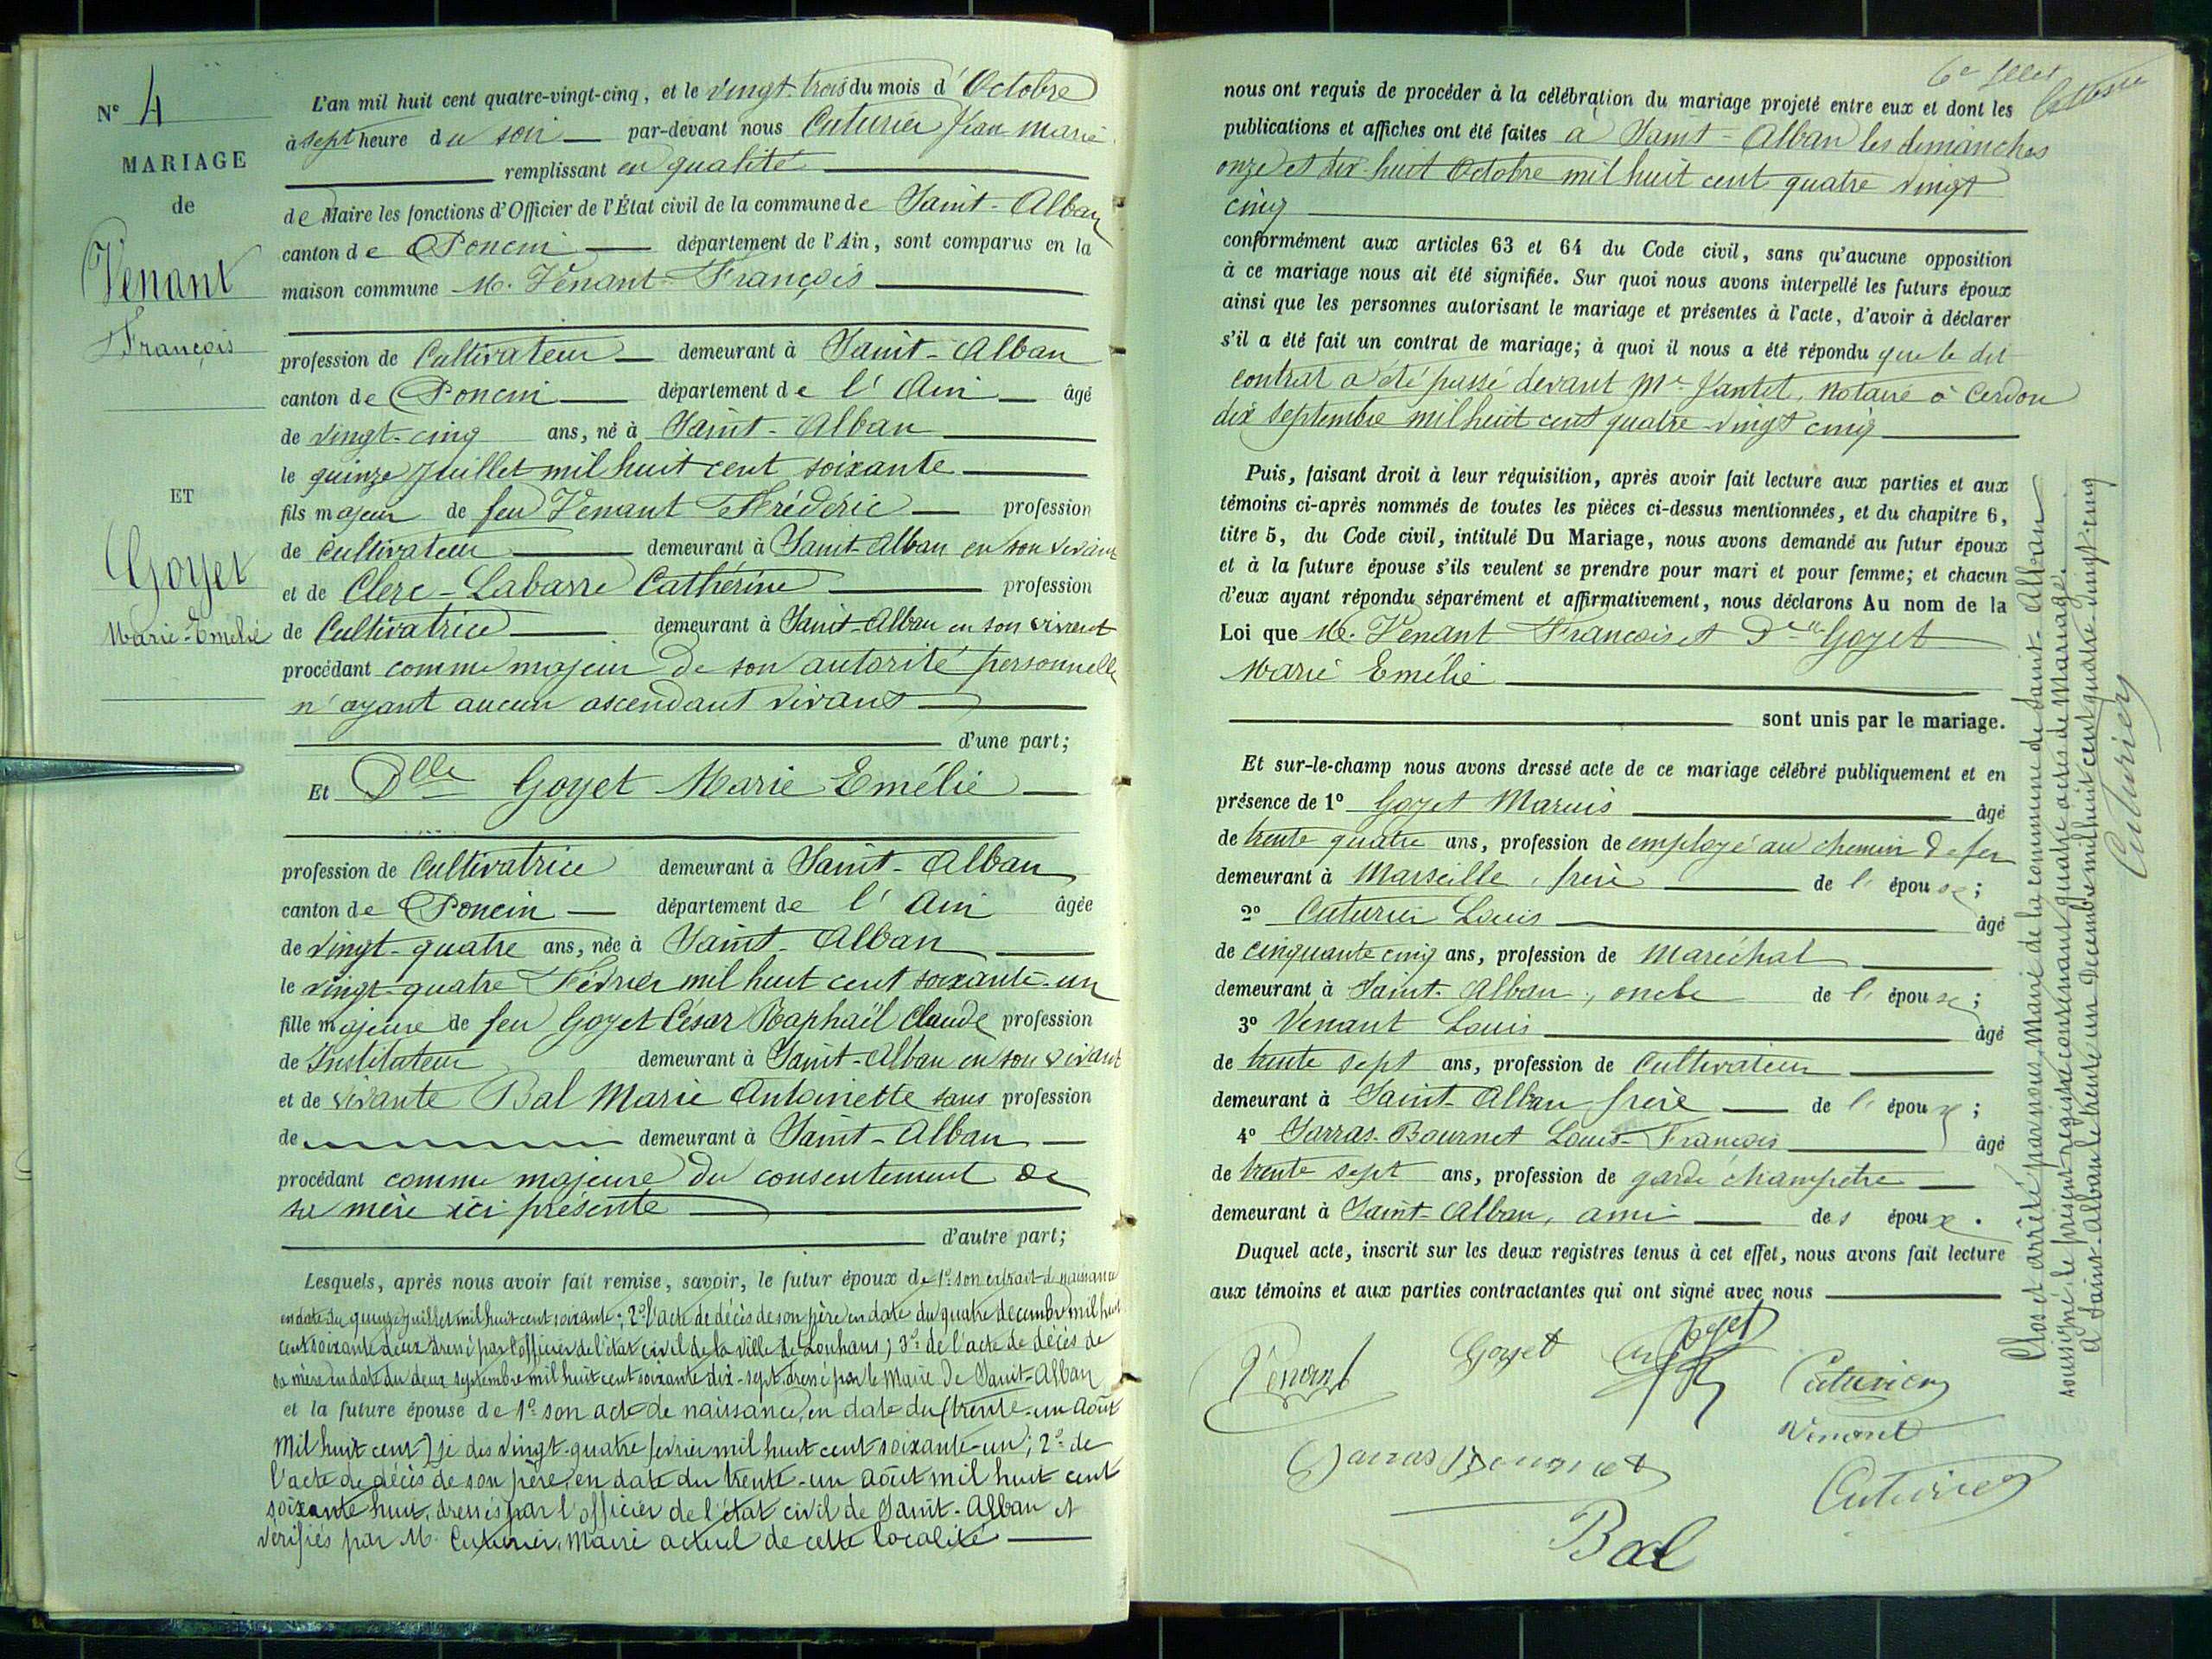 N° 4
MARIAGE
de
Venant
François
ET
Goyet
Marie-Emélie
L'an mil huit cent quatre-vingt-cinq, et le vingt-trois du mois d'Octobre
à sept heure du soir par-devant nous Cuturier Jean-Marie
remplissant en qualité
de Maire les fonctions d'Officier de l'État civil de la commune de Saint-Alban
canton de Poncin département de l'Ain, sont comparus en la
maison commune M. Venant François
profession de Cultivateur demeurant à Saint-Alban
canton de Poncin département de l'Ain âgé
de vingt-cinq ans, né à Saint-Alban
le quinze Juillet mil huit cent soixante
fils majeur de feu Venant Frédéric profession
de Cultivateur demeurant à Saint-Alban en son vivant
et de Clerc-Labarre Cathérine profession
de Cultivatrice demeurant à Saint-Alban en son vivant
procédant comme majeur de son autorité personnelle
n'ayant aucun ascendant vivant
d'une part;
Et Dlle Goyet Marie Emélie
profession de Cultivatrice demeurant à Saint-Alban
canton de Poncin département de l'Ain âgée
de vingt-quatre ans, née à Saint-Alban
le vingt-quatre Février mil huit cent soixante-un
fille majeure de feu Goyet César Raphaël Claude profession
de Instituteur demeurant à Saint-Alban en son vivant
et de vivante Bal Marie Antoinette sans profession
de demeurant à Saint-Alban
procédant comme majeure du consentement de
sa mère ici présente
d'autre part;
Lesquels, après nous avoir fait remise, savoir, le futur époux de 1° son extrait de naissance
en date du quinze juillet mil huit cent soixante; 2° l'acte de décès de son père en date du quatre décembre mil huit
cent soixante deux dressé par l'officier de l'état civil de la ville de Louhans; 3° de l'acte de décès de
sa mère en date du deux septembre mil huit cent soixante dix-sept dressé par le Maire de Saint-Alban
et la future épouse de 1° son acte de naissance, en date du (trente-un Août
mil huit cent) je dis vingt-quatre février mil huit cent soixante-un; 2° de
l'acte de décès de son père, en date du trente-un Août mil huit cent
soixante huit, dressés par l'officier de l'état civil de Saint-Alban et
vérifiés par M. Cuturier, Maire actuel de cette localité
6e
nous ont requis de procéder à la célébration du mariage projeté entre eux et dont les
publications et affiches ont été faites à Saint-Alban les dimanches
onze et dix-huit Octobre mil huit cent quatre vingt
cinq
conformément aux articles 63 et 64 du Code civil, sans qu'aucune opposition
à ce mariage nous ait été signifiée. Sur quoi nous avons interpellé les futurs époux
ainsi que les personnes autorisant le mariage et présentes à l'acte, d'avoir à déclarer
s'il a été fait un contrat de mariage; à quoi il nous a été répondu que le dit
contrat a été passé devant Me Jantet, Notaire à Cerdon
dix Septembre mil huit cent quatre-vingt cinq
Puis, faisant droit à leur réquisition, après avoir fait lecture aux parties et aux
témoins ci-après nommés de toutes les pièces ci-dessus mentionnées, et du chapitre 6,
titre 5, du Code civil, intitulé Du Mariage, nous avons demandé au futur époux
et à la future épouse s'ils veulent se prendre pour mari et pour femme; et chacun
d'eux ayant répondu séparément et affirmativement, nous déclarons Au nom de la
Loi que M. Venant François et Delle Goyet
Marie Emélie
sont unis par le mariage.
Et sur-le-champ nous avons dressé acte de ce mariage célébré publiquement et en
présence de 1° Goyet Marius âgé
de trente quatre ans, profession de employé au chemin de fer
demeurant à Marseille, frère de l'épouse;
2° Cuturier Louis âgé
de cinquante cinq ans, profession de Maréchal
demeurant à Saint-Alban, oncle de l'épouse;
3° Venant Louis âgé
de trente sept ans, profession de Cultivateur
demeurant à Saint-Alban frère de l'époux;
4° Sarras-Bournet Louis-François âgé
de trente sept ans, profession de garde champêtre
demeurant à Saint-Alban, ami des époux.
Duquel acte, inscrit sur les deux registres tenus à cet effet, nous avons fait lecture
aux témoins et aux parties contractantes qui ont signé avec nous
Venant Goyet Goyet Cuturier
Venant
Sarras Bournet
Cuturier
Bal
Clos et arrêté par nous, Maire de la commune de Saint-Alban
soussigné, le présent registre contenant quatre actes de Mariage.
A Saint-Alban le trente un Décembre mil huit cent quatre-vingt-cinq
Cuturier